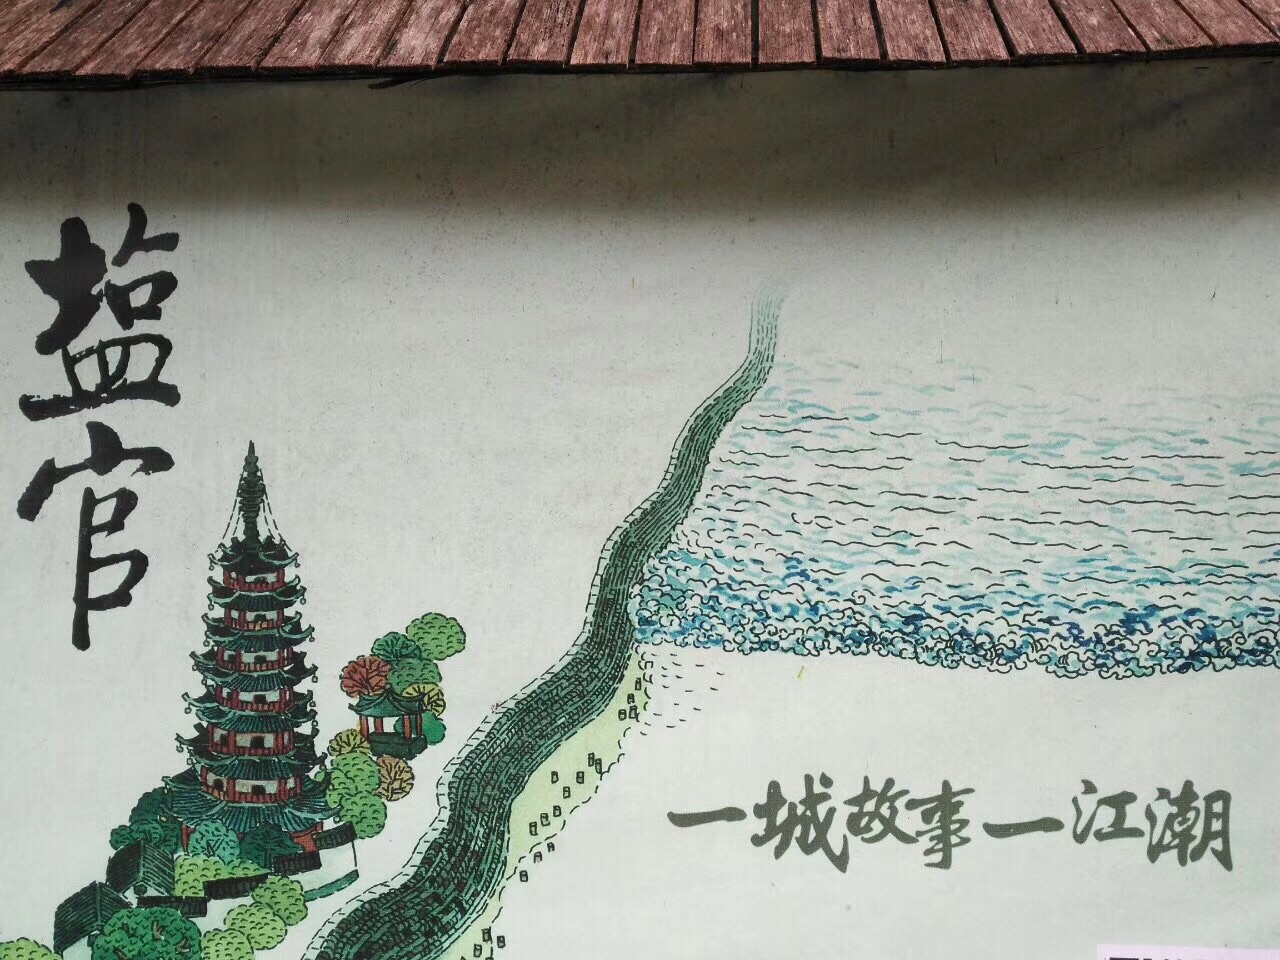 盐官
一城故事一江潮